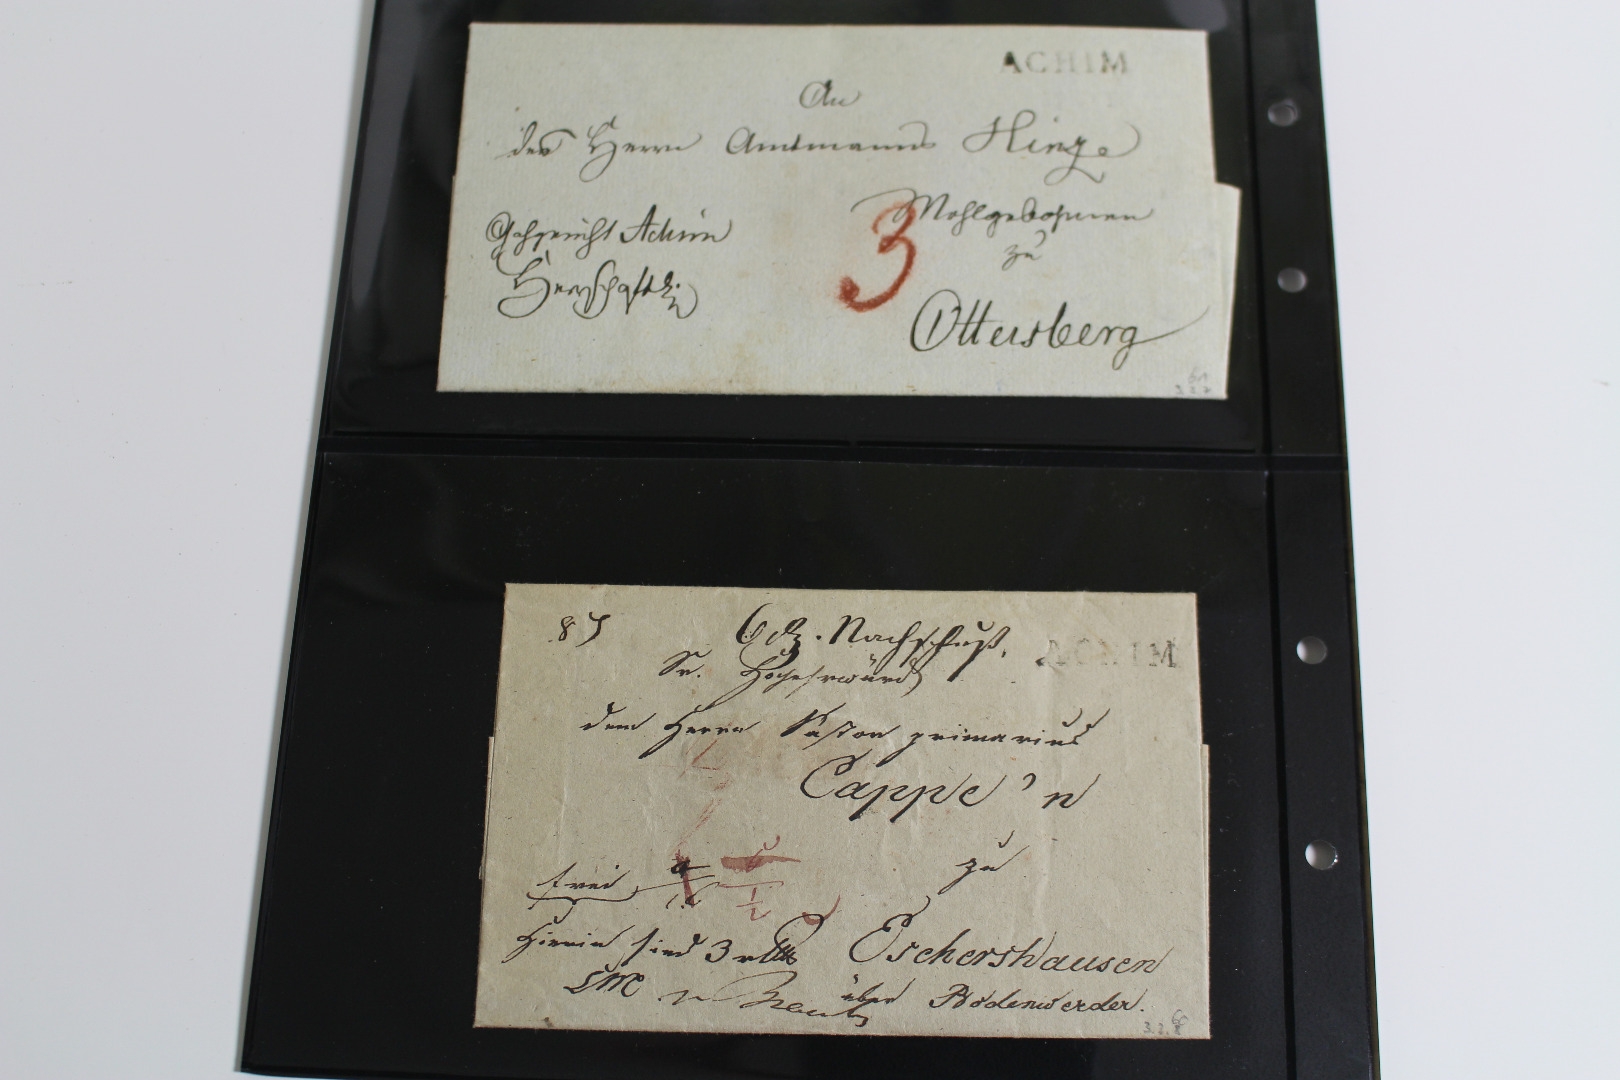 ACHIM
An
des Herrn Amtmanns Hinze
Wohlgebohrnen
zu
Ottersberg
Gohgericht Achim
Herrschaftl.
3
3.2.7
ACHIM
87
6 Nachschuß.
Sr. Hochehrwürd
dem Herrn Pastor primarius
Cappe'n
zu
Eschershausen
über Bodenwerder.
frei
Hierin sind 3
3.2.